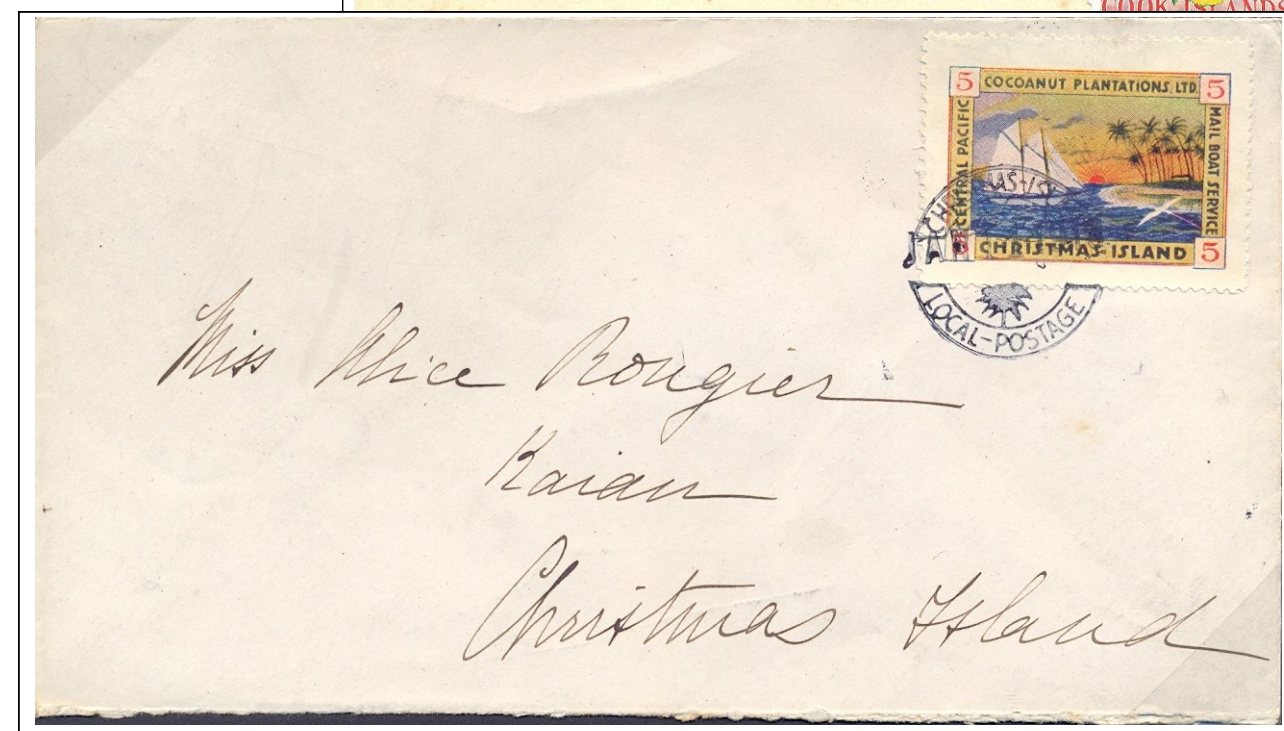 COOK ISLANDS
5 COCOANUT PLANTATIONS, LTD. 5
CENTRAL PACIFIC
MAIL BOAT SERVICE
CHRISTMAS ISLAND 5
LOCAL-POSTAGE
Miss Alice Rougier
Kaiau
Christmas Island